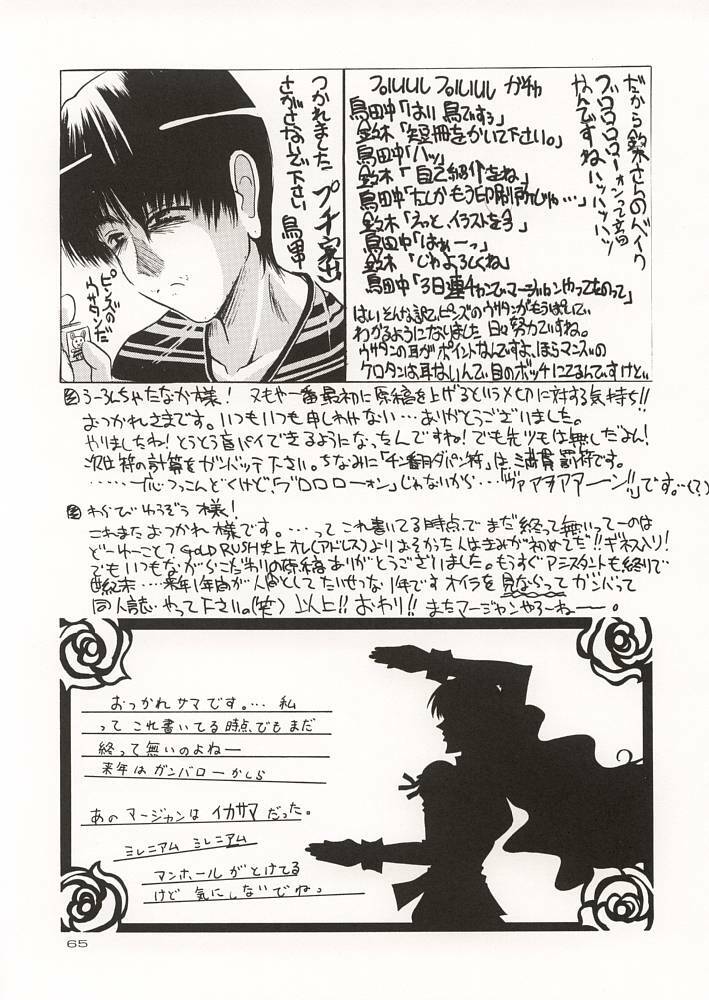 だから鈴木さんのバイク
ブロロロローォンって言う
なんですねハッハッハッ
プルルルル プルルルル ガチャ
鳥田中「はい 鳥ですぅ」
鈴木「短冊をかいて下さい。」
鳥田中「ハッ」
鈴木「自己紹介をね」
鳥田中「たしかもう印刷所じゃ…」
鈴木「えっと、イラストを今」
鳥田中「はぁーっ」
鈴木「じゃよろしくね」
鳥田中「3日連チャンでマージャンやってものって」
はいそんな訳でピンズのウサタンがもうぱいして
わかるようになりました 日々努力ですね。
ウサタンの耳がポイントなんですよ、ほらマンズの
ケロタンは耳ないんで、目のポッチにてるんですけど…
つかれました プチ家出
さがさないで下さい 鳥田中
ピンズの
ウサタンだ
うーろんちゃたなか様! マもや一番最初に原稿を上げるというメ切に対する気持ち!!
おつかれさまです。いつもいつも申しわけない…ありがとうございました。
やりましたね!とうとう盲パイできるようになったんですね!でも先ツモは無しだよん!
次は符の計算をガンバッテ下さい。ちなみに「チン番月ダパン符」は満貫罰符です。
つっこんどくけど、「ブロロローォン」じゃないから…『ヴァアヲアアーン!!』です。…(?)
わかびゆうぞう様!
これまたおつかれ様です。…って これ書いてる時点でまだ終って無いってーのは
どーゆーこと? GOLD RUSH史上オレ(アドレス)よりおそかった人はきみが初めてだ!!ギネス入り!
でもいつもながらこだわりの原稿ありがとうございました。もうすぐアシスタントも終りで
世紀末…来年1年間が人間としてたいせつな1年です オイラを見ならってガンバって
同人誌やって下さい。(笑) 以上!! おわり!! またマージャンやろーねー。
おつかれサマです。… 私
って これ書いてる時点でもまだ
終って無いのよねー
来年はガンバローかしら
あの マージャンは イカサマ だった。
ミレニアム ミレニアム
マンホールがとけてる
けど 気にしないでねっ
65